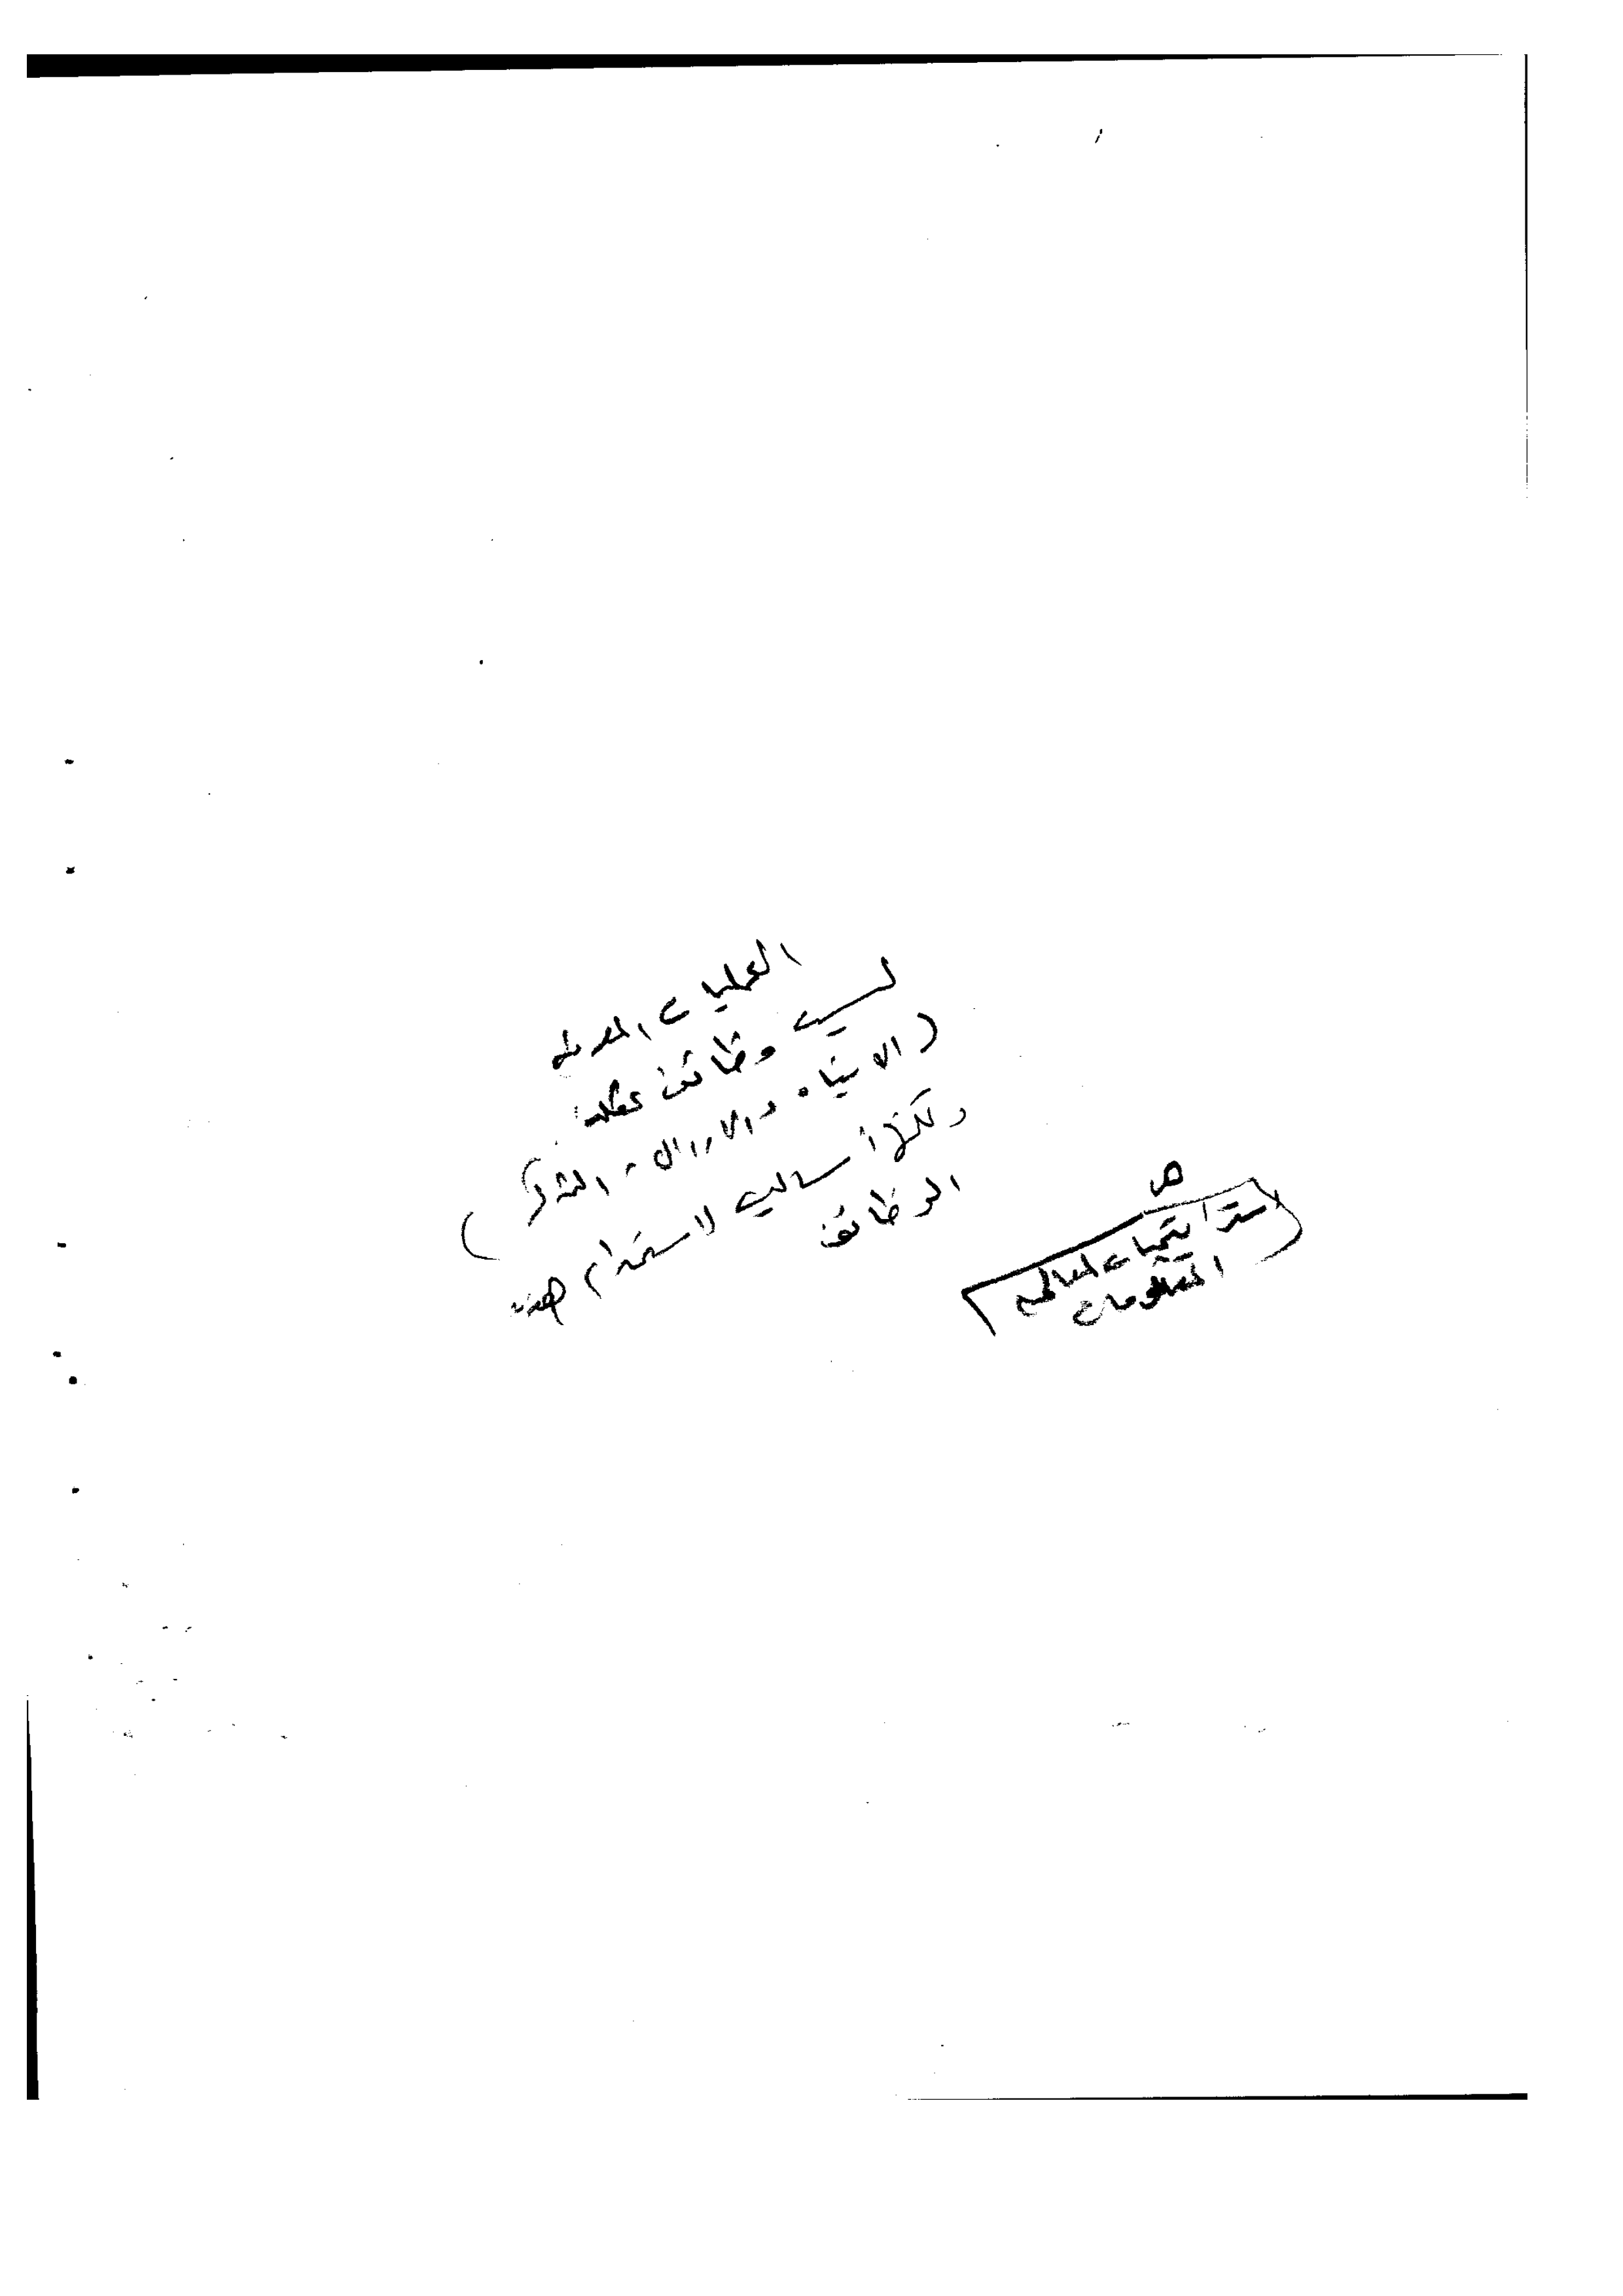 العمليات المعرفية
ليست وظائف عقلية
(الانتباه والادراك - التذكر)
ولكنها أساليب لاستخدام هذه
الوظائف
هى
استراتيجيات لمعالجة
المعلومات